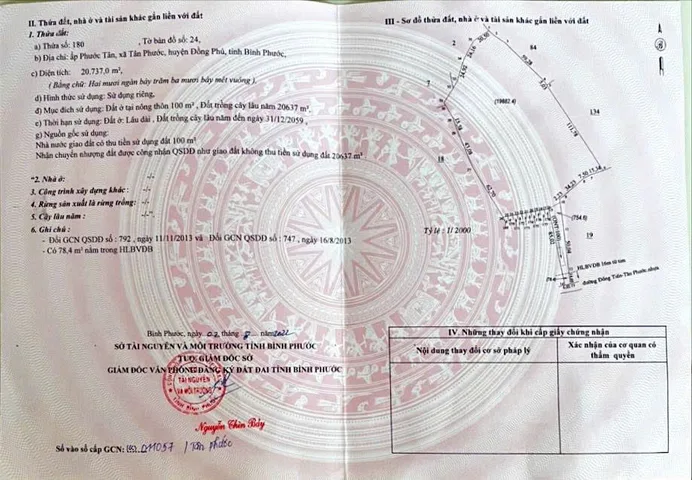 II. Thửa đất, nhà ở và tài sản khác gắn liền với đất
1. Thửa đất:
a) Thửa số: 180 , Tờ bản đồ số: 24,
b) Địa chỉ: ấp Phước Tân, xã Tân Phước, huyện Đồng Phú, tỉnh Bình Phước,
c) Diện tích: 20.737,0 m²,
( Bằng chữ: Hai mươi ngàn bảy trăm ba mươi bảy mét vuông) ,
d) Hình thức sử dụng: Sử dụng riêng,
đ) Mục đích sử dụng: Đất ở tại nông thôn 100 m² , Đất trồng cây lâu năm 20637 m²,
e) Thời hạn sử dụng: Đất ở: Lâu dài , Đất trồng cây lâu năm đến ngày 31/12/2059 ,
g) Nguồn gốc sử dụng:
Nhà nước giao đất có thu tiền sử dụng đất 100 m²
Nhận chuyển nhượng đất được công nhận QSDĐ như giao đất không thu tiền sử dụng đất 20637 m²
"2. Nhà ở: -/-
3. Công trình xây dựng khác: -/-
4. Rừng sản xuất là rừng trồng: -/-
5. Cây lâu năm : -/-".
6. Ghi chú :
- Đổi GCN QSDĐ số : 792 , ngày 11/11/2013 và Đổi GCN QSDĐ số : 747 , ngày 16/8/2013
- Có 78,4 m² nằm trong HLBVĐB
Bình Phước, ngày 02 tháng năm 2022
SỞ TÀI NGUYÊN VÀ MÔI TRƯỜNG TỈNH BÌNH PHƯỚC
TUQ. GIÁM ĐỐC SỞ
GIÁM ĐỐC VĂN PHÒNG ĐĂNG KÝ ĐẤT ĐAI TỈNH BÌNH PHƯỚC
SỞ
TÀI NGUYÊN
VÀ MÔI TRƯỜNG
TỈNH BÌNH PHƯỚC
Nguyễn Thìn Bảy
Số vào sổ cấp GCN: 01057 / Tân Phước
III - Sơ đồ thửa đất, nhà ở và tài sản khác gắn liền với đất
2
84
7
(19982.4)
134
18
111.74
43.98
62.70
2.23
34.23
7.50
15.34
(754.6)
19
Tỷ lệ : 1/ 2000
HLBVĐB 16m từ tim
đường Đồng Tiến-Tân Phước,nhựa
IV. Những thay đổi khi cấp giấy chứng nhận
Nội dung thay đổi cơ sở pháp lý
Xác nhận của cơ quan có
thẩm quyền